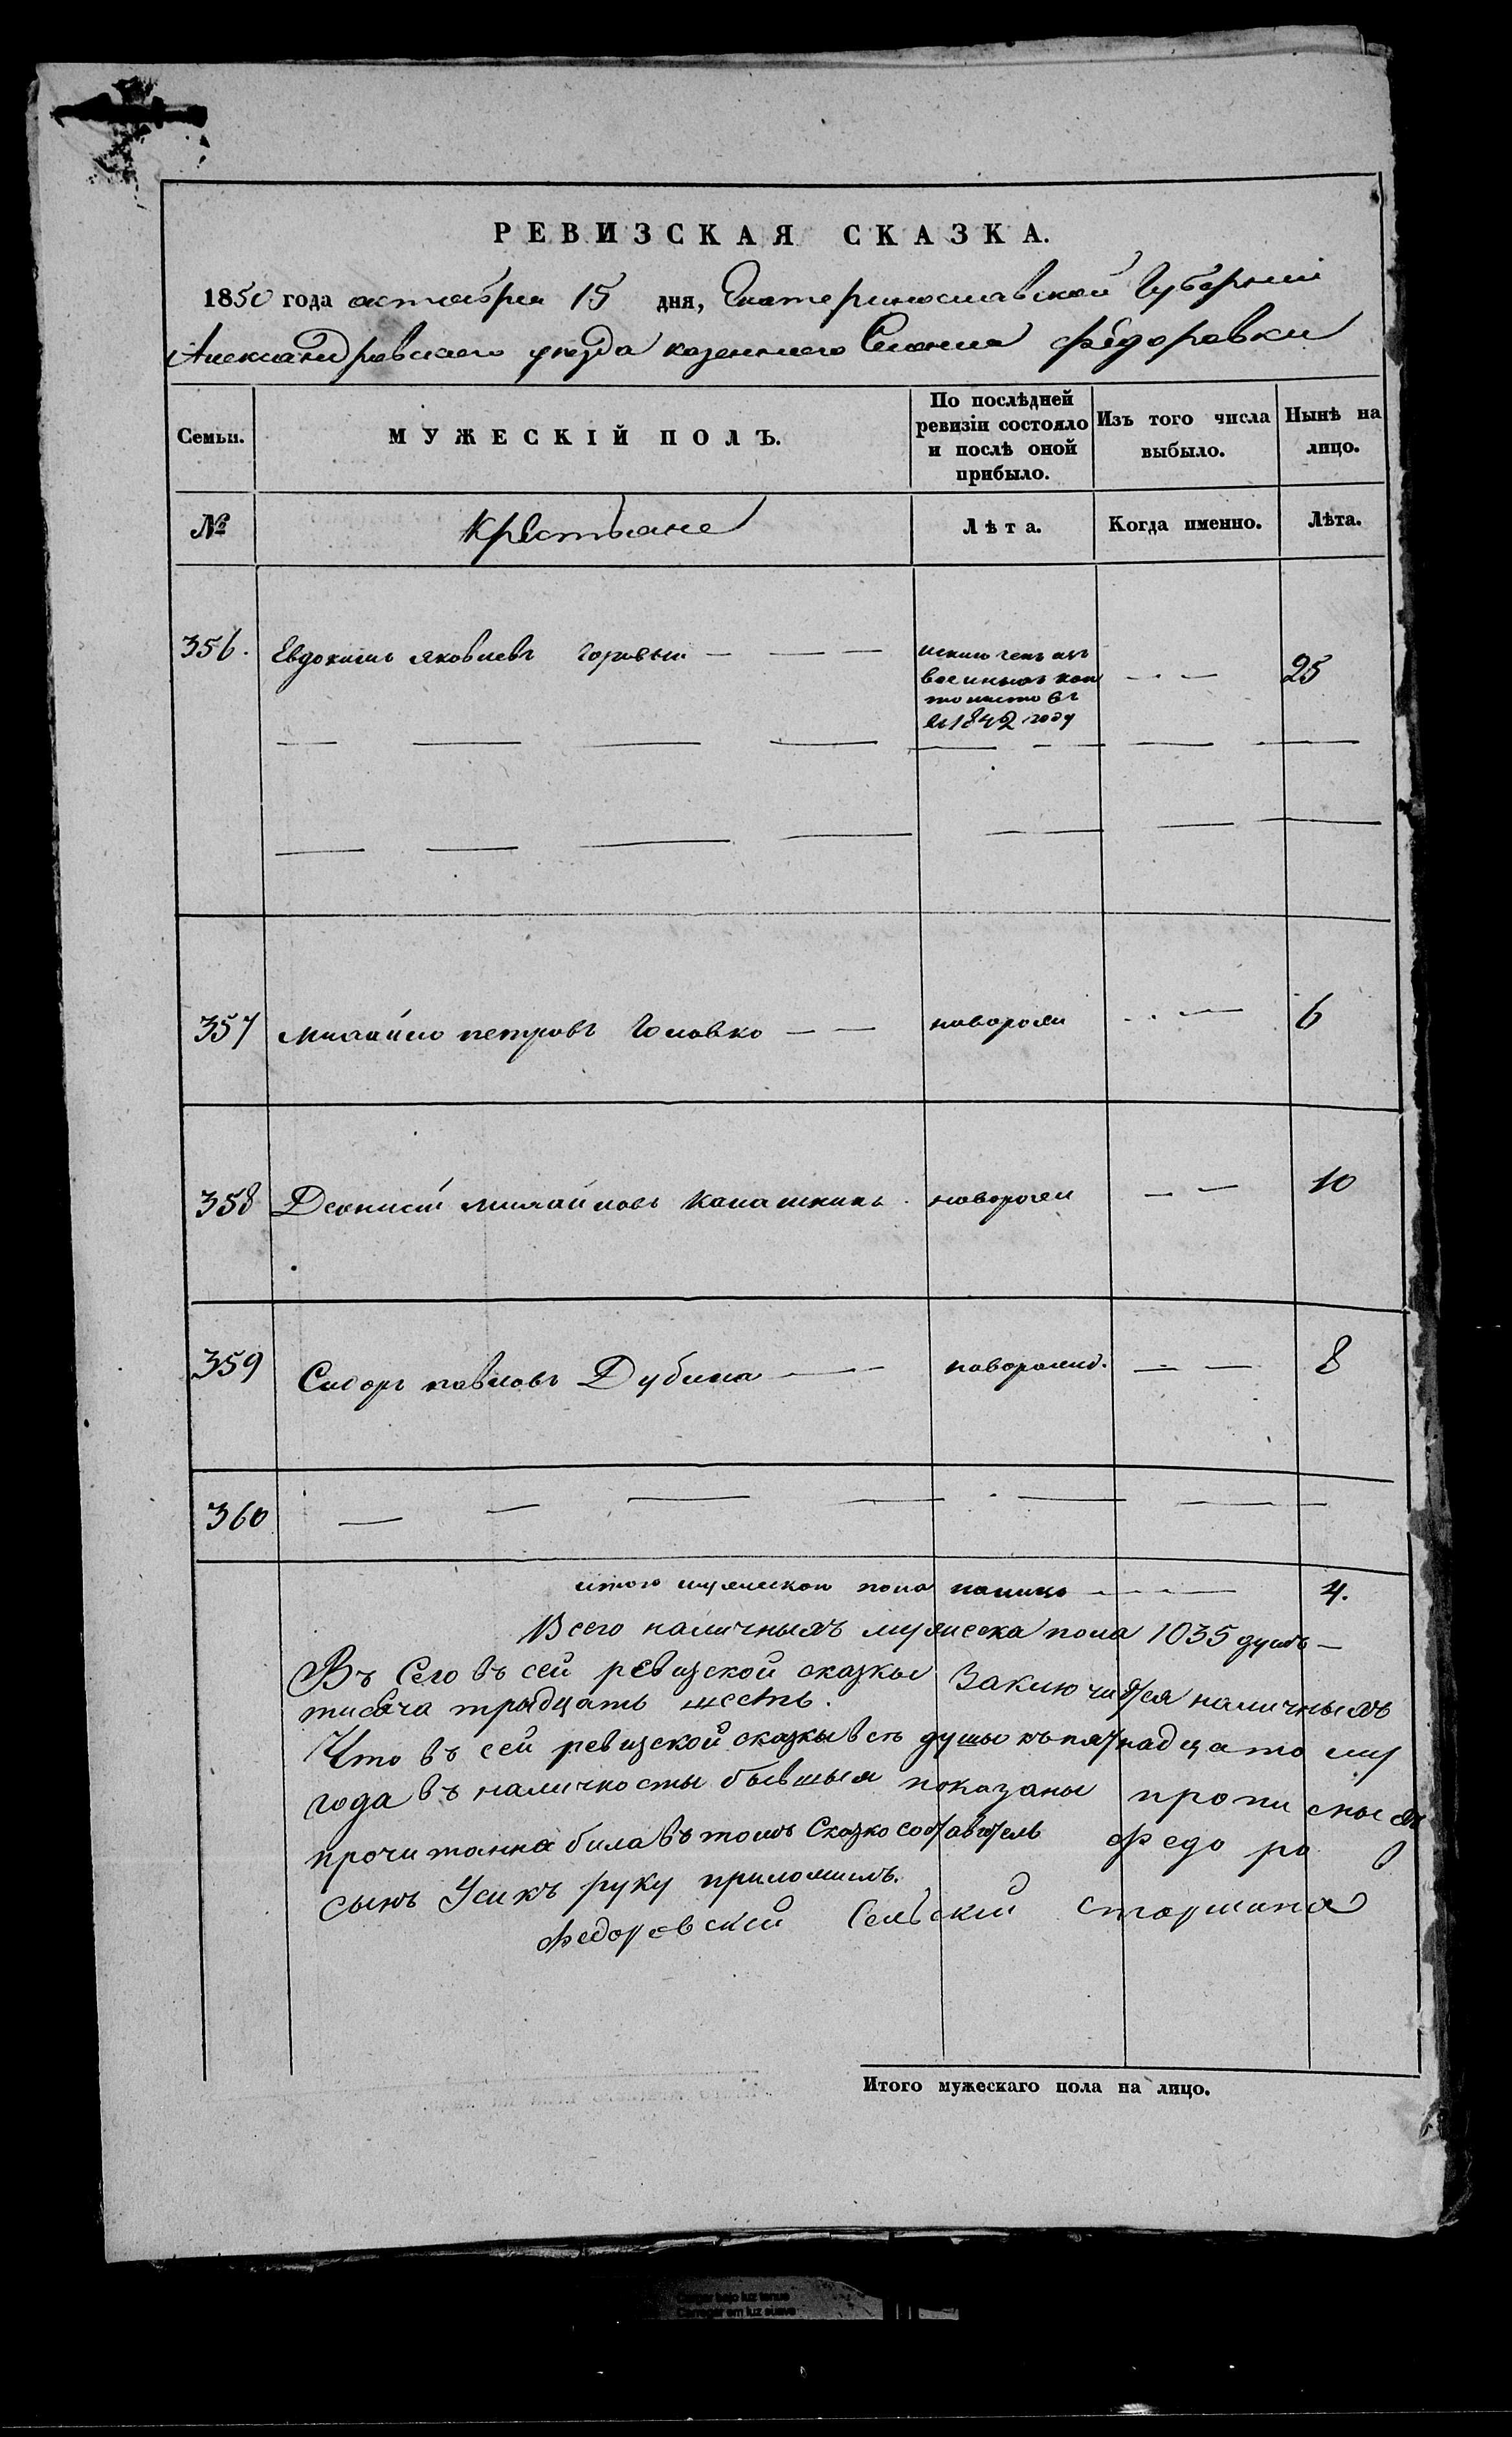 РЕВИЗСКАЯ СКАЗКА.
1850 года октября 15 дня, Екатеринославской Губернии
Александровского уезда казенного Селения Федоровки
Семьи. МУЖЕСКІЙ ПОЛЪ. По послѣдней ревизіи состояло и послѣ оной прибыло. Изъ того числа выбыло. Нынѣ на лицо.
№ Крестьяне Лѣта. Когда именно. Лѣта.
356. Евдокимъ Яковлевъ исключенъ изъ 25
военныхъ кан
тонистовъ
въ 1842 году
357 Михайло петровъ Головко новорожд 6
358 Деонисий Михайловъ Калашникъ новорожд 10
359 Сидоръ павловъ Дубина новорожд. 8
360
итого мужеска пола налицо 4.
Всего наличныхъ мужеска пола 1035 душъ
Въ Сего въ сей ревизской сказки Заключается наличныхъ
тисяча трыдцать шесть.
Что въ сей ревизской сказкы всѣ душы къ пятнадцато му
года въ наличносты бывшыя показаны прописныхъ
прочитанна била въ томъ Сказко составитель Федо ро
сынъ Усикъ руку приложилъ.
Федоровский Сельский старшина
Итого мужескаго пола на лицо.